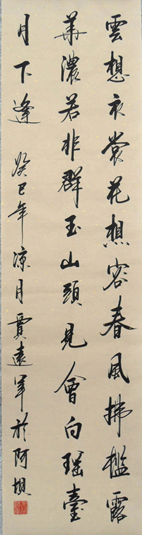 雲想衣裳花想容春風拂檻露
華濃若非群玉山頭見會向瑶臺
月下逢 癸巳年涼月賈遠軍於阿坝